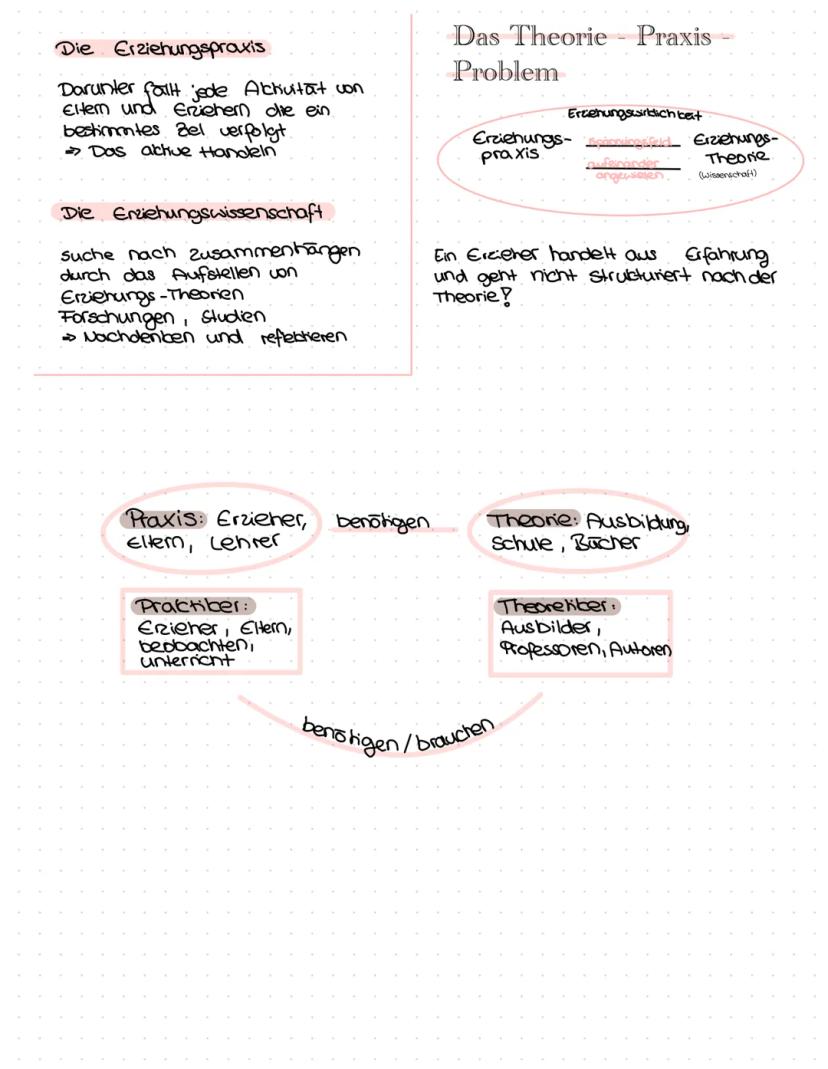 Die Erziehungspraxis
Darunter fällt jede Aktivität von
Eltern und Erziehern die ein
bestimmtes Ziel verfolgt
⇒ Das aktive Handeln
Die Erziehungswissenschaft
suche nach Zusammenhängen
durch das Aufstellen von
Erziehungs-Theorien
Forschungen, Studien
⇒ Nachdenken und reflektieren
Das Theorie - Praxis -
Problem
Erziehungswirklichkeit
Erziehungs-
praxis
Spannungsfeld
aufeinander
angewiesen
Erziehungs-
Theorie
(Wissenschaft)
Ein Erzieher handelt aus Erfahrung
und geht nicht strukturiert nach der
Theorie?
Praxis: Erzieher,
Eltern, Lehrer
benötigen
Theorie: Ausbildung,
Schule, Bücher
Praktiker:
Erzieher, Eltern,
beobachten,
unterricht
Theoretiker:
Ausbilder,
Professoren, Autoren
benötigen / brauchen